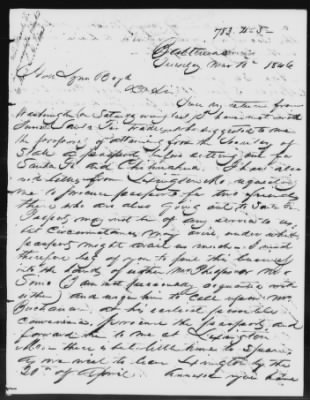 783. W-S-
Baltimore
Tuesday Mar 10th 1846
Hon Lynn Boyd
Dr Sir
Since my return from
Washington on Saturday evening last I have met with
some Santa Fe Traders who suggested to me
the propriety of obtaining from the Secretary of
State a passport before setting out for
Santa Fe and Chihuahua. I have also
letters from requesting
me to procure passports for
there who are also going out to Santa Fe
Passports may not be of any service to us,
but circumstances may arise, under which
passports might avail us much. I must
therefore beg of you to put this business
into the hands of either Mr or Mr
(I am not personally acquainted with
either) and urge him to call upon Mr.
Buchanan at his earliest possible
convenience, procure the passports and
forward them to me at Lexington
Mo— there is but little time to spare
as we wish to leave Lexington by the
20th of April. Annexed you have